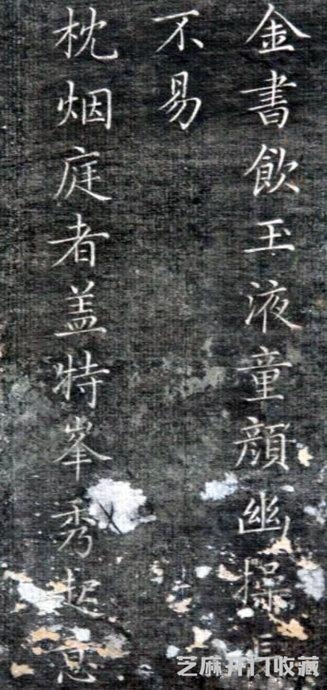 金書飲玉液童顏幽操長
不易
枕烟庭者盖特峯秀起意
芝麻开门收藏